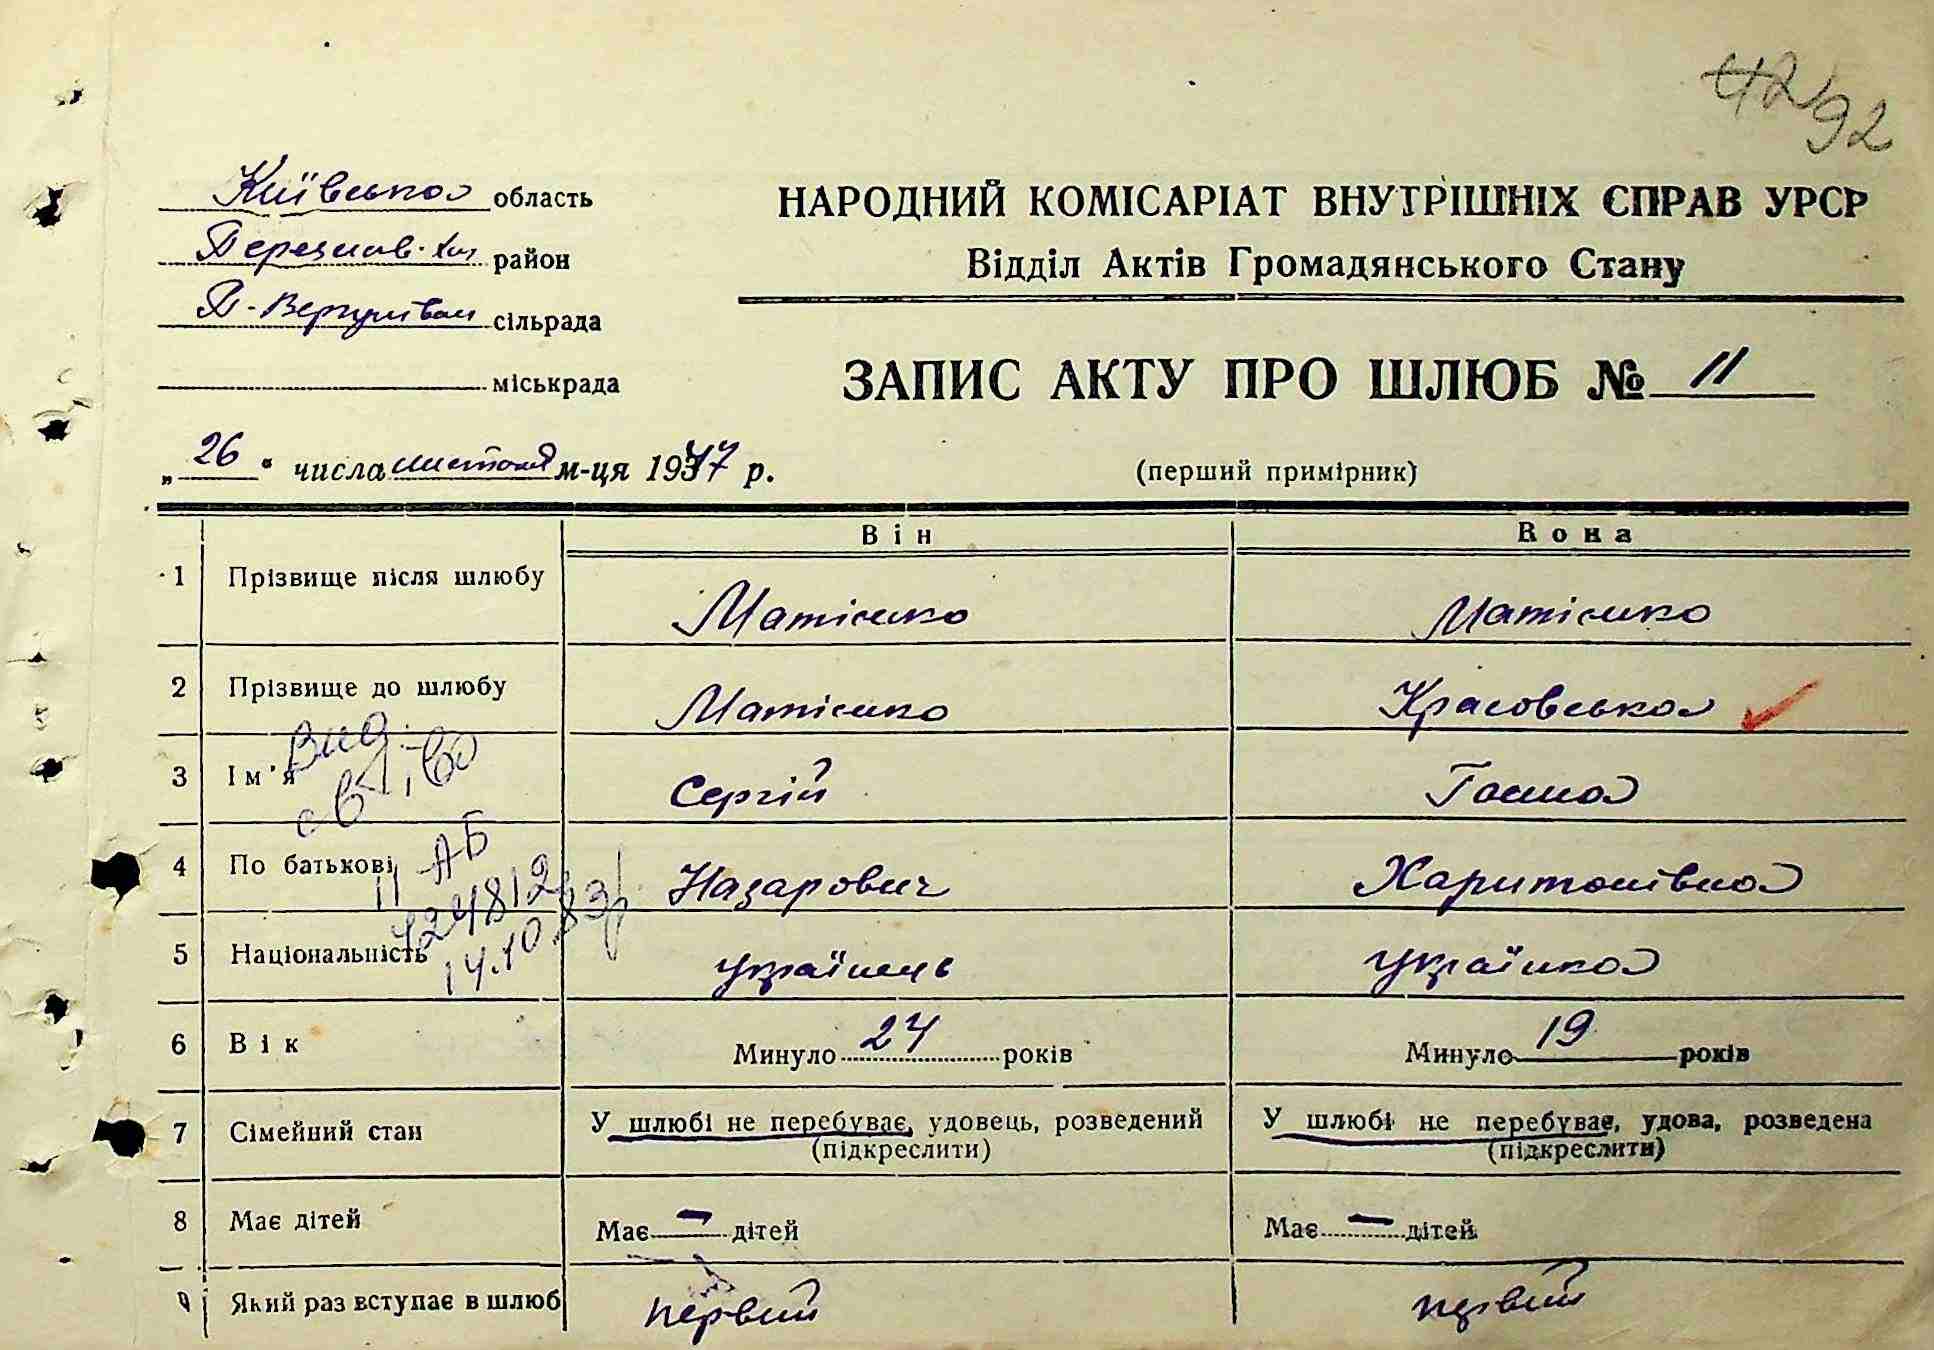 92
Київська область
НАРОДНИЙ КОМІСАРІАТ ВНУТРІШНІХ СПРАВ УРСР
район
Відділ Актів Громадянського Стану
сільрада
міськрада
ЗАПИС АКТУ ПРО ШЛЮБ № 11
„26“ числа листопада м-ця 1947 р.
(перший примірник)
Він Вона
1 Прізвище після шлюбу Матієнко Матієнко
2 Прізвище до шлюбу Матієнко Красовська
Вид.
3 Ім'я Сергій Ганна
св-во
4 По батькові Назарович Харитонівна
II АБ
5 Національність українець українка
14.10.83р
6 Вік Минуло 24 років Минуло 19 років
7 Сімейний стан У шлюбі не перебуває, удовець, розведений У шлюбі не перебуває, удова, розведена
(підкреслити) (підкреслити)
8 Має дітей Має — дітей Має — дітей
9 Який раз вступає в шлюб первий первий